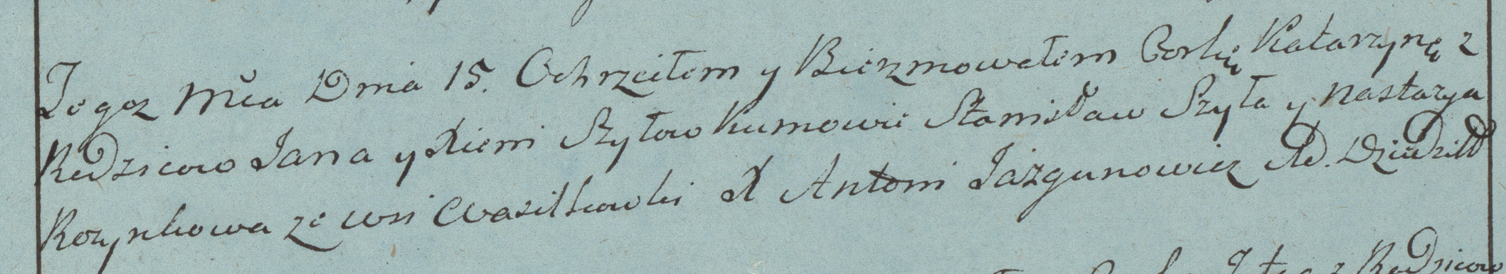 Tegoż mca Dnia 15. Ochrzciłem y Bierzmowałem Corkę Katarzynę z
Rodzicow Jana y Xieni Szyłow Kumowie Stanisław Szyła y Nastazya
Kozynkowa ze wsi Wasilkowki X Antoni Jazgunowicz Ad. Dziedziło
Rodzicow